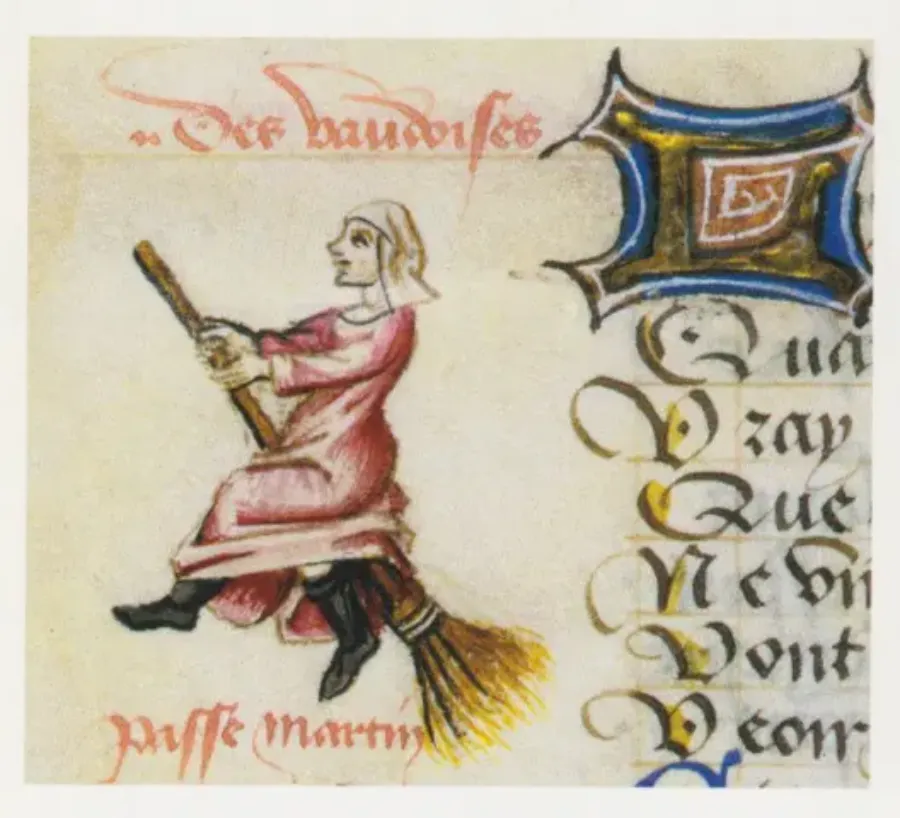 Des vaudoises
L
Qua
Vray
Que
Ne vii
Vont
Veoir
passe martin